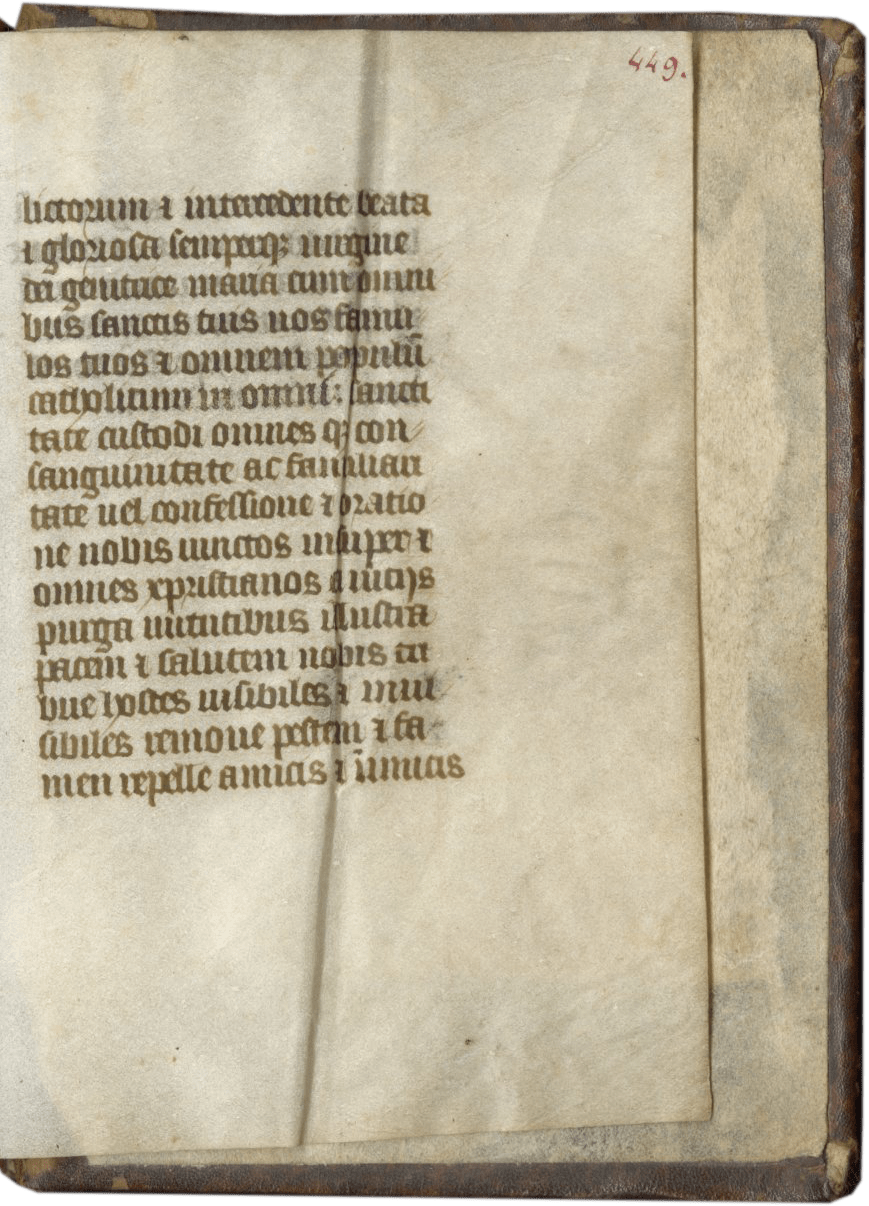 449.
lictorum ⁊ intercedente beata
⁊ gloriosa semperq; uirgine
dei genitrice maria cum omni
bus sanctis tuis nos famu
los tuos ⁊ omnem populū
catholicum in omni: sancti
tate custodi omnes q; con
sanguinitate ac familiari
tate uel confessione ⁊ oratio
ne nobis iunctos insuper ⁊
omnes xpristianos a uicijs
purga uirtutibus illustra
pacem ⁊ salutem nobis tri
bue hostes uisibiles ⁊ inui
sibiles remoue pestem ⁊ fa
men repelle amicis ⁊ īimicis